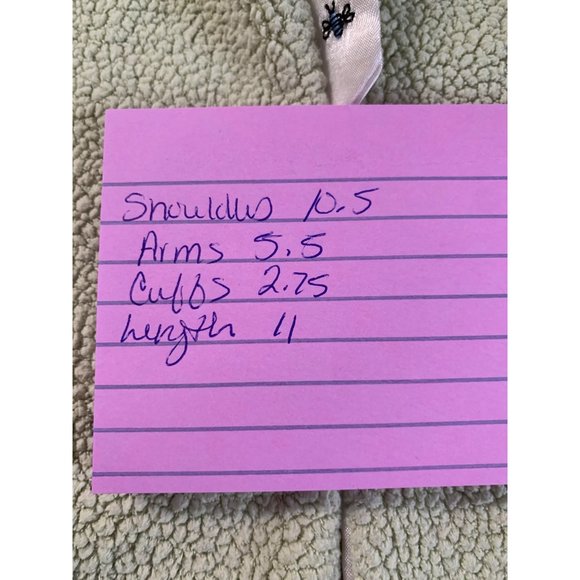 Shoulders 10.5
Arms 5.5
Cuffs 2.75
Length 11